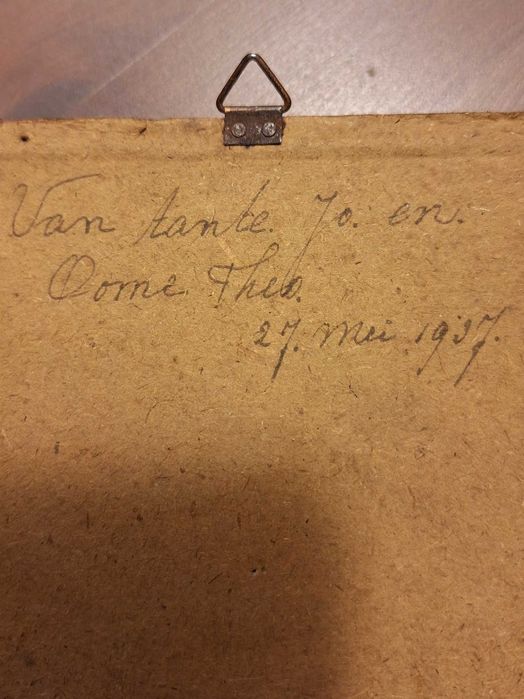 Van tante. Jo. en.
Oome Theo.
27. Mei 1937.